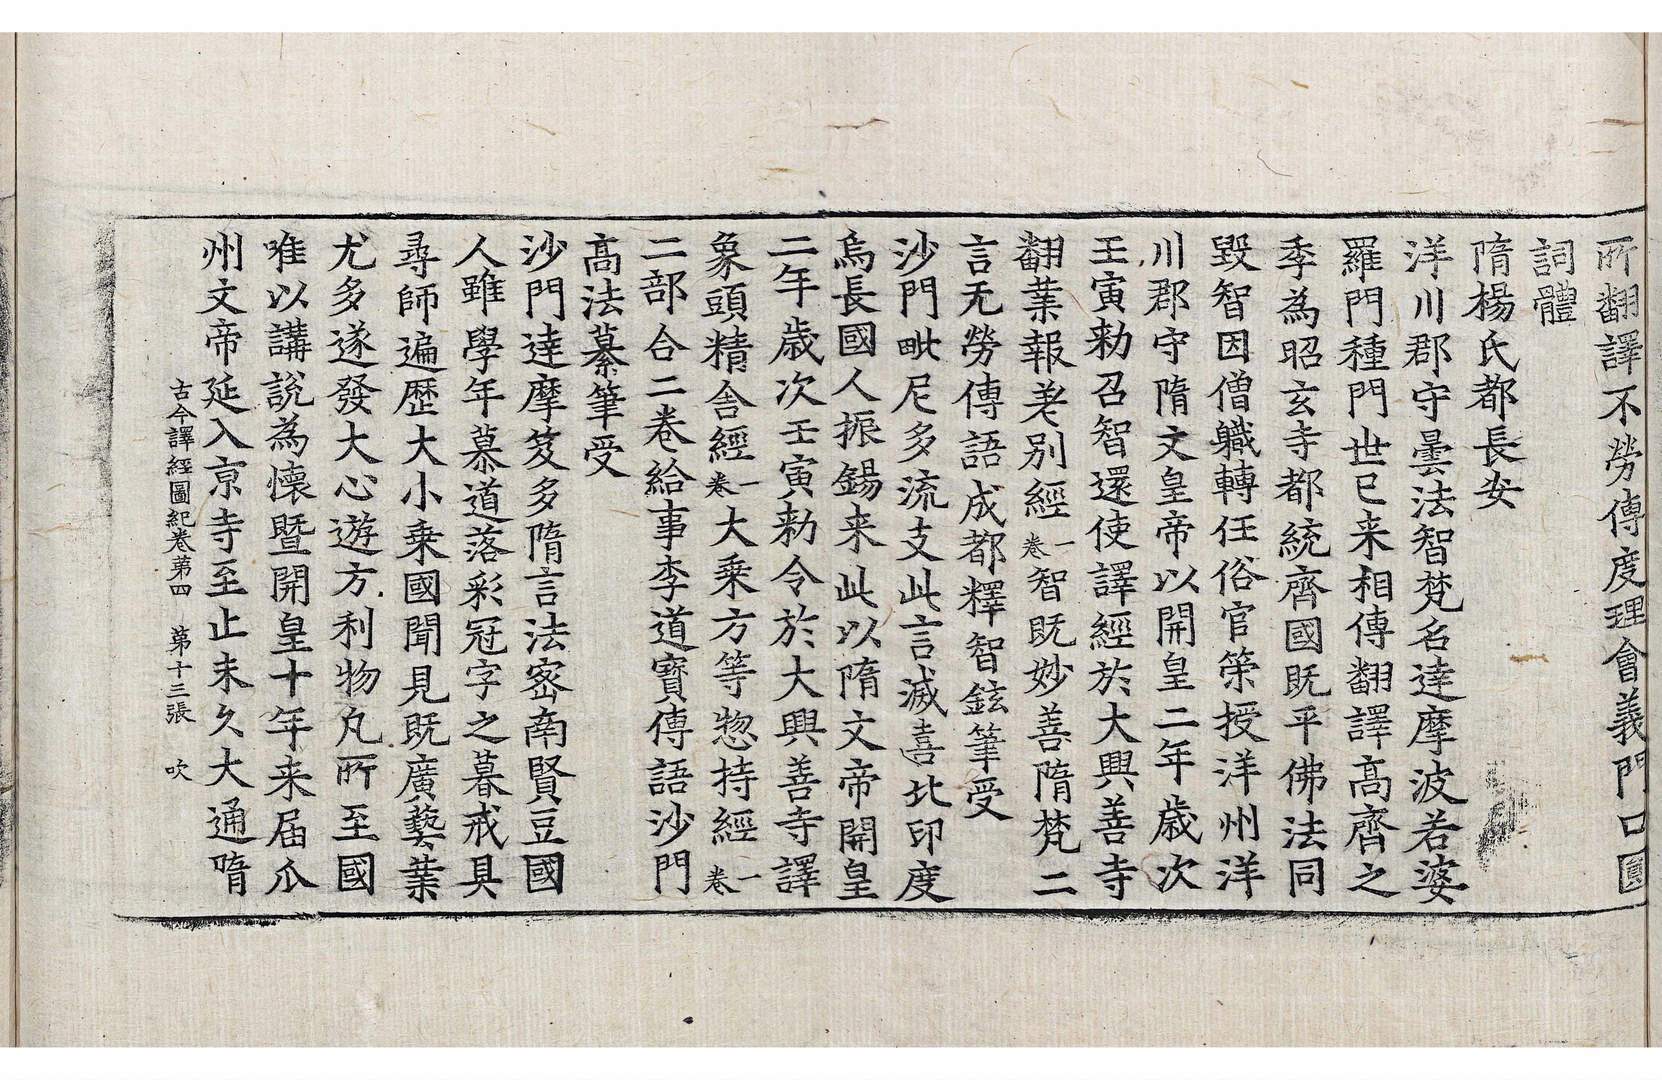 所翻譯不勞傳度理會義門口圓
詞體
隋楊氏都長安
洋川郡守曇法智梵名達摩波若婆
羅門種門世已来相傳翻譯高齊之
季為昭玄寺都統齊國既平佛法同
毀智因僧軄轉任俗官筞授洋州洋
川郡守隋文皇帝以開皇二年歲次
壬寅勑召智還使譯經於大興善寺
翻葉報差別經一卷智既妙善隋梵二
言无勞傳語成都釋智鉉筆受
沙門毗尼多流支此言滅喜北印度
烏長國人振錫来此以隋文帝開皇
二年歲次壬寅勑令於大興善寺譯
象頭精舍經一卷大乗方等惣持經一卷
二部合二卷給事李道寶傳語沙門
高法纂筆受
沙門達摩笈多隋言法密南賢豆國
人雖學年慕道落彩冠字之暮戒具
尋師遍歷大小乗國聞見既廣藝葉
尤多遂發大心遊方利物凡所至國
唯以講說為懷暨開皇十年来届瓜
州文帝延入京寺至止未久大通隋
古今譯經圖紀卷第四 第十三張 吹